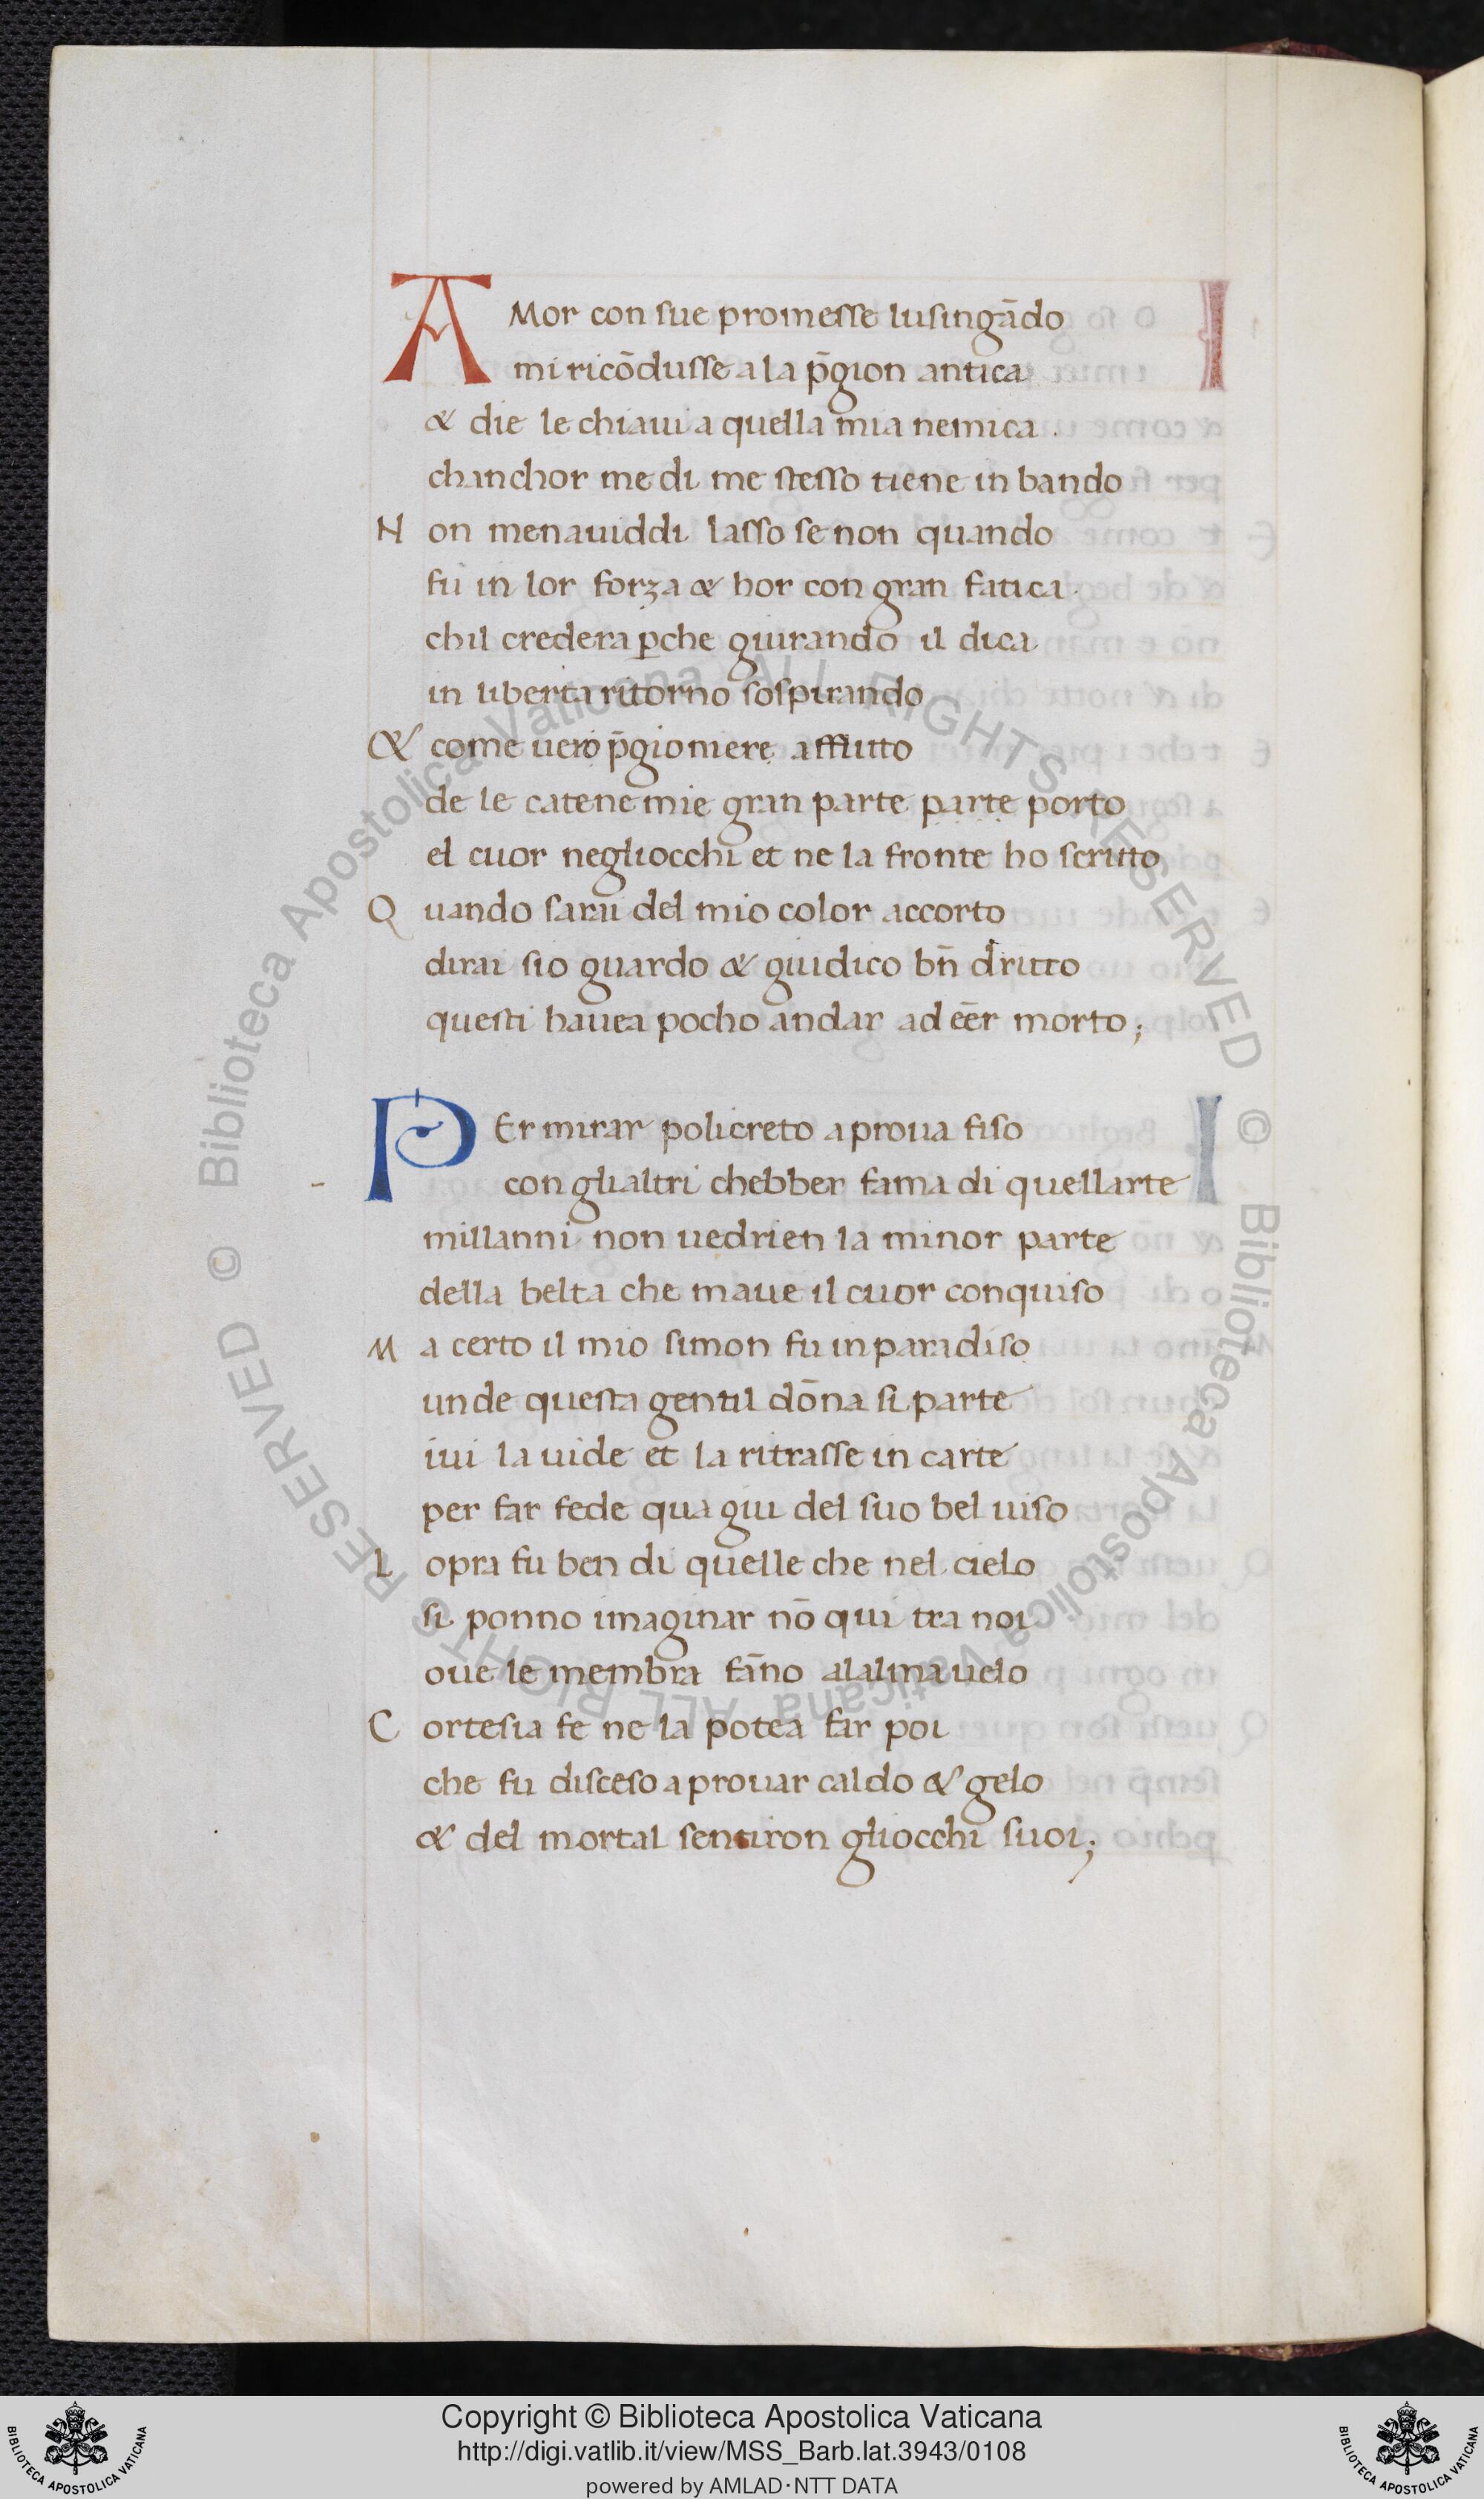 AMor con sue promesse lusingādo
mi ricōdusse a la p̄gion antica
& die le chiaui a quella mia nemica .
chanchor me di me stesso tiene in bando
Non menauiddi lasso se non quando
fu in lor forza & hor con gran fatica
chil credera ꝑche giurando il dica
in liberta ritorno sospirando
& come uero p̄gioniere afflitto
de le catene mie gran parte parte porto
el cuor negliocchi et ne la fronte ho scritto
Quando sarai del mio color accorto
dirai sio guardo & giudico bn̄ dritto
questi hauea pocho andar ad eēr morto;
PEr mirar policreto a proua fiso
con glialtri chebber fama di quellarte
millanni non uedrien la minor parte
della belta che maue il cuor conquiso
Ma certo il mio simon fu in paradiso
unde questa gentil dōna si parte
iui la uide et la ritrasse in carte
per far fede qua giu del suo bel uiso
Lopra fu ben di quelle che nel cielo
si ponno imaginar nō qui tra noi
oue le membra fāno alalma uelo
Cortesia fe ne la potea far poi
che fu disceso a prouar caldo & gelo
& del mortal sentiron gliocchi suoi;
© Biblioteca Apostolica Vaticana ALL RIGHTS RESERVED © Biblioteca Apostolica Vaticana ALL RIGHTS RESERVED
BIBLIOTECA APOSTOLICA VATICANA
Copyright © Biblioteca Apostolica Vaticana
http://digi.vatlib.it/view/MSS_Barb.lat.3943/0108
powered by AMLAD·NTT DATA
BIBLIOTECA APOSTOLICA VATICANA